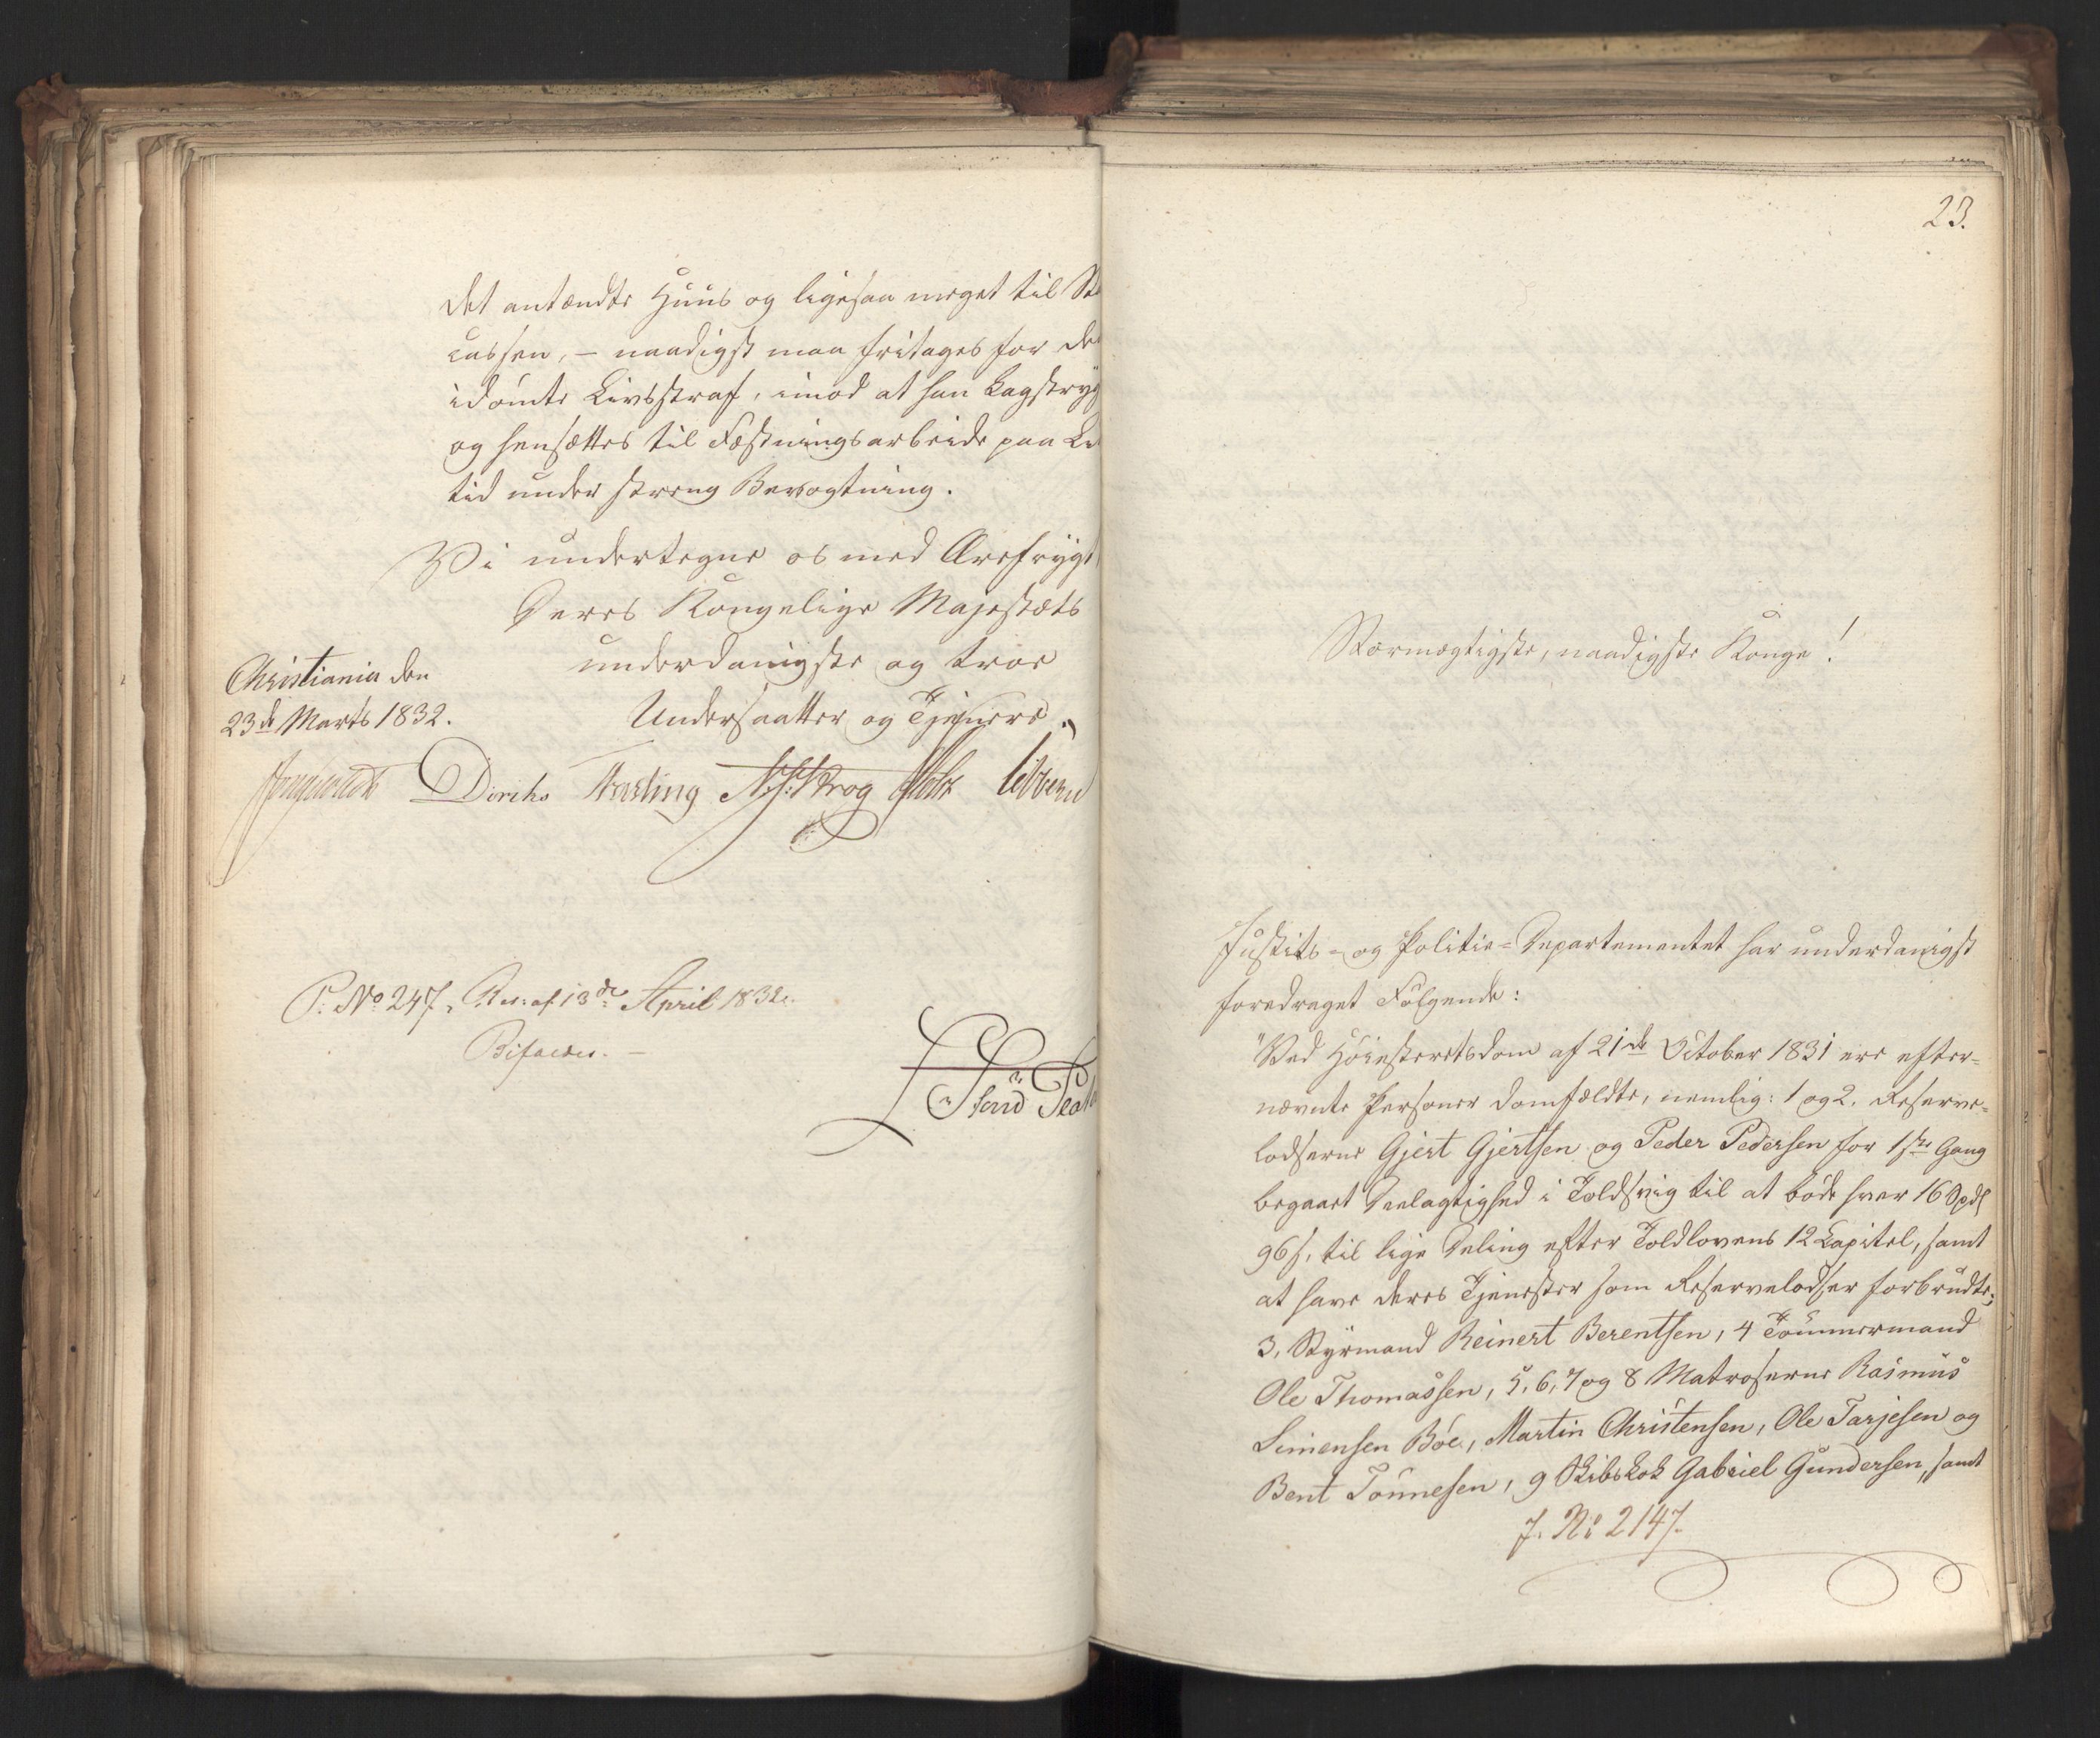 det antændte Huus og ligesaa meget til St
cassen, – naadigst maa fritages for de
idömte Livsstraf, imod at han Kagstryg
og hensættes til Fæstningsarbeide paa Li
tid under streng Bevogtning.
Vi undertegne os med Ærefrygt
Deres Kongelige Majestæts
underdanigste og troe
Undersaatter og Tjenere.
Christiania den
23de Marts 1832.
Diriks Krog Holst
P: No 247, Res: af 13de April 1832.
Bifaldes. –
23.
Stormægtigste, naadigste Konge!
Justits- og Politie-Departementet har underdanigst
foredraget Følgende:
"Ved Höiesteretsdom af 21de October 1831 ere efter-
nævnte Personer domfældte, nemlig: 1 og 2. Reserve-
lodserne Gjert Gjertsen og Peder Pedersen for 1ste Gang
begaaet Deelagtighed i Toldsvig til at böde hver 16 Spdl
96 s, til lige Deling efter Toldlovens 12 Capitel, samt
at have deres Tjenester som Reservelodser forbrudte;
3, Styrmand Reinert Berentsen, 4 Tömmermand
Ole Thomassen, 5, 6, 7 og 8 Matroserne Rasmus
Simensen Böe, Martin Christensen, Ole Tarjesen og
Bent Tönnesen, 9 Skibskok Gabriel Gundersen, samt
J. No 2147.